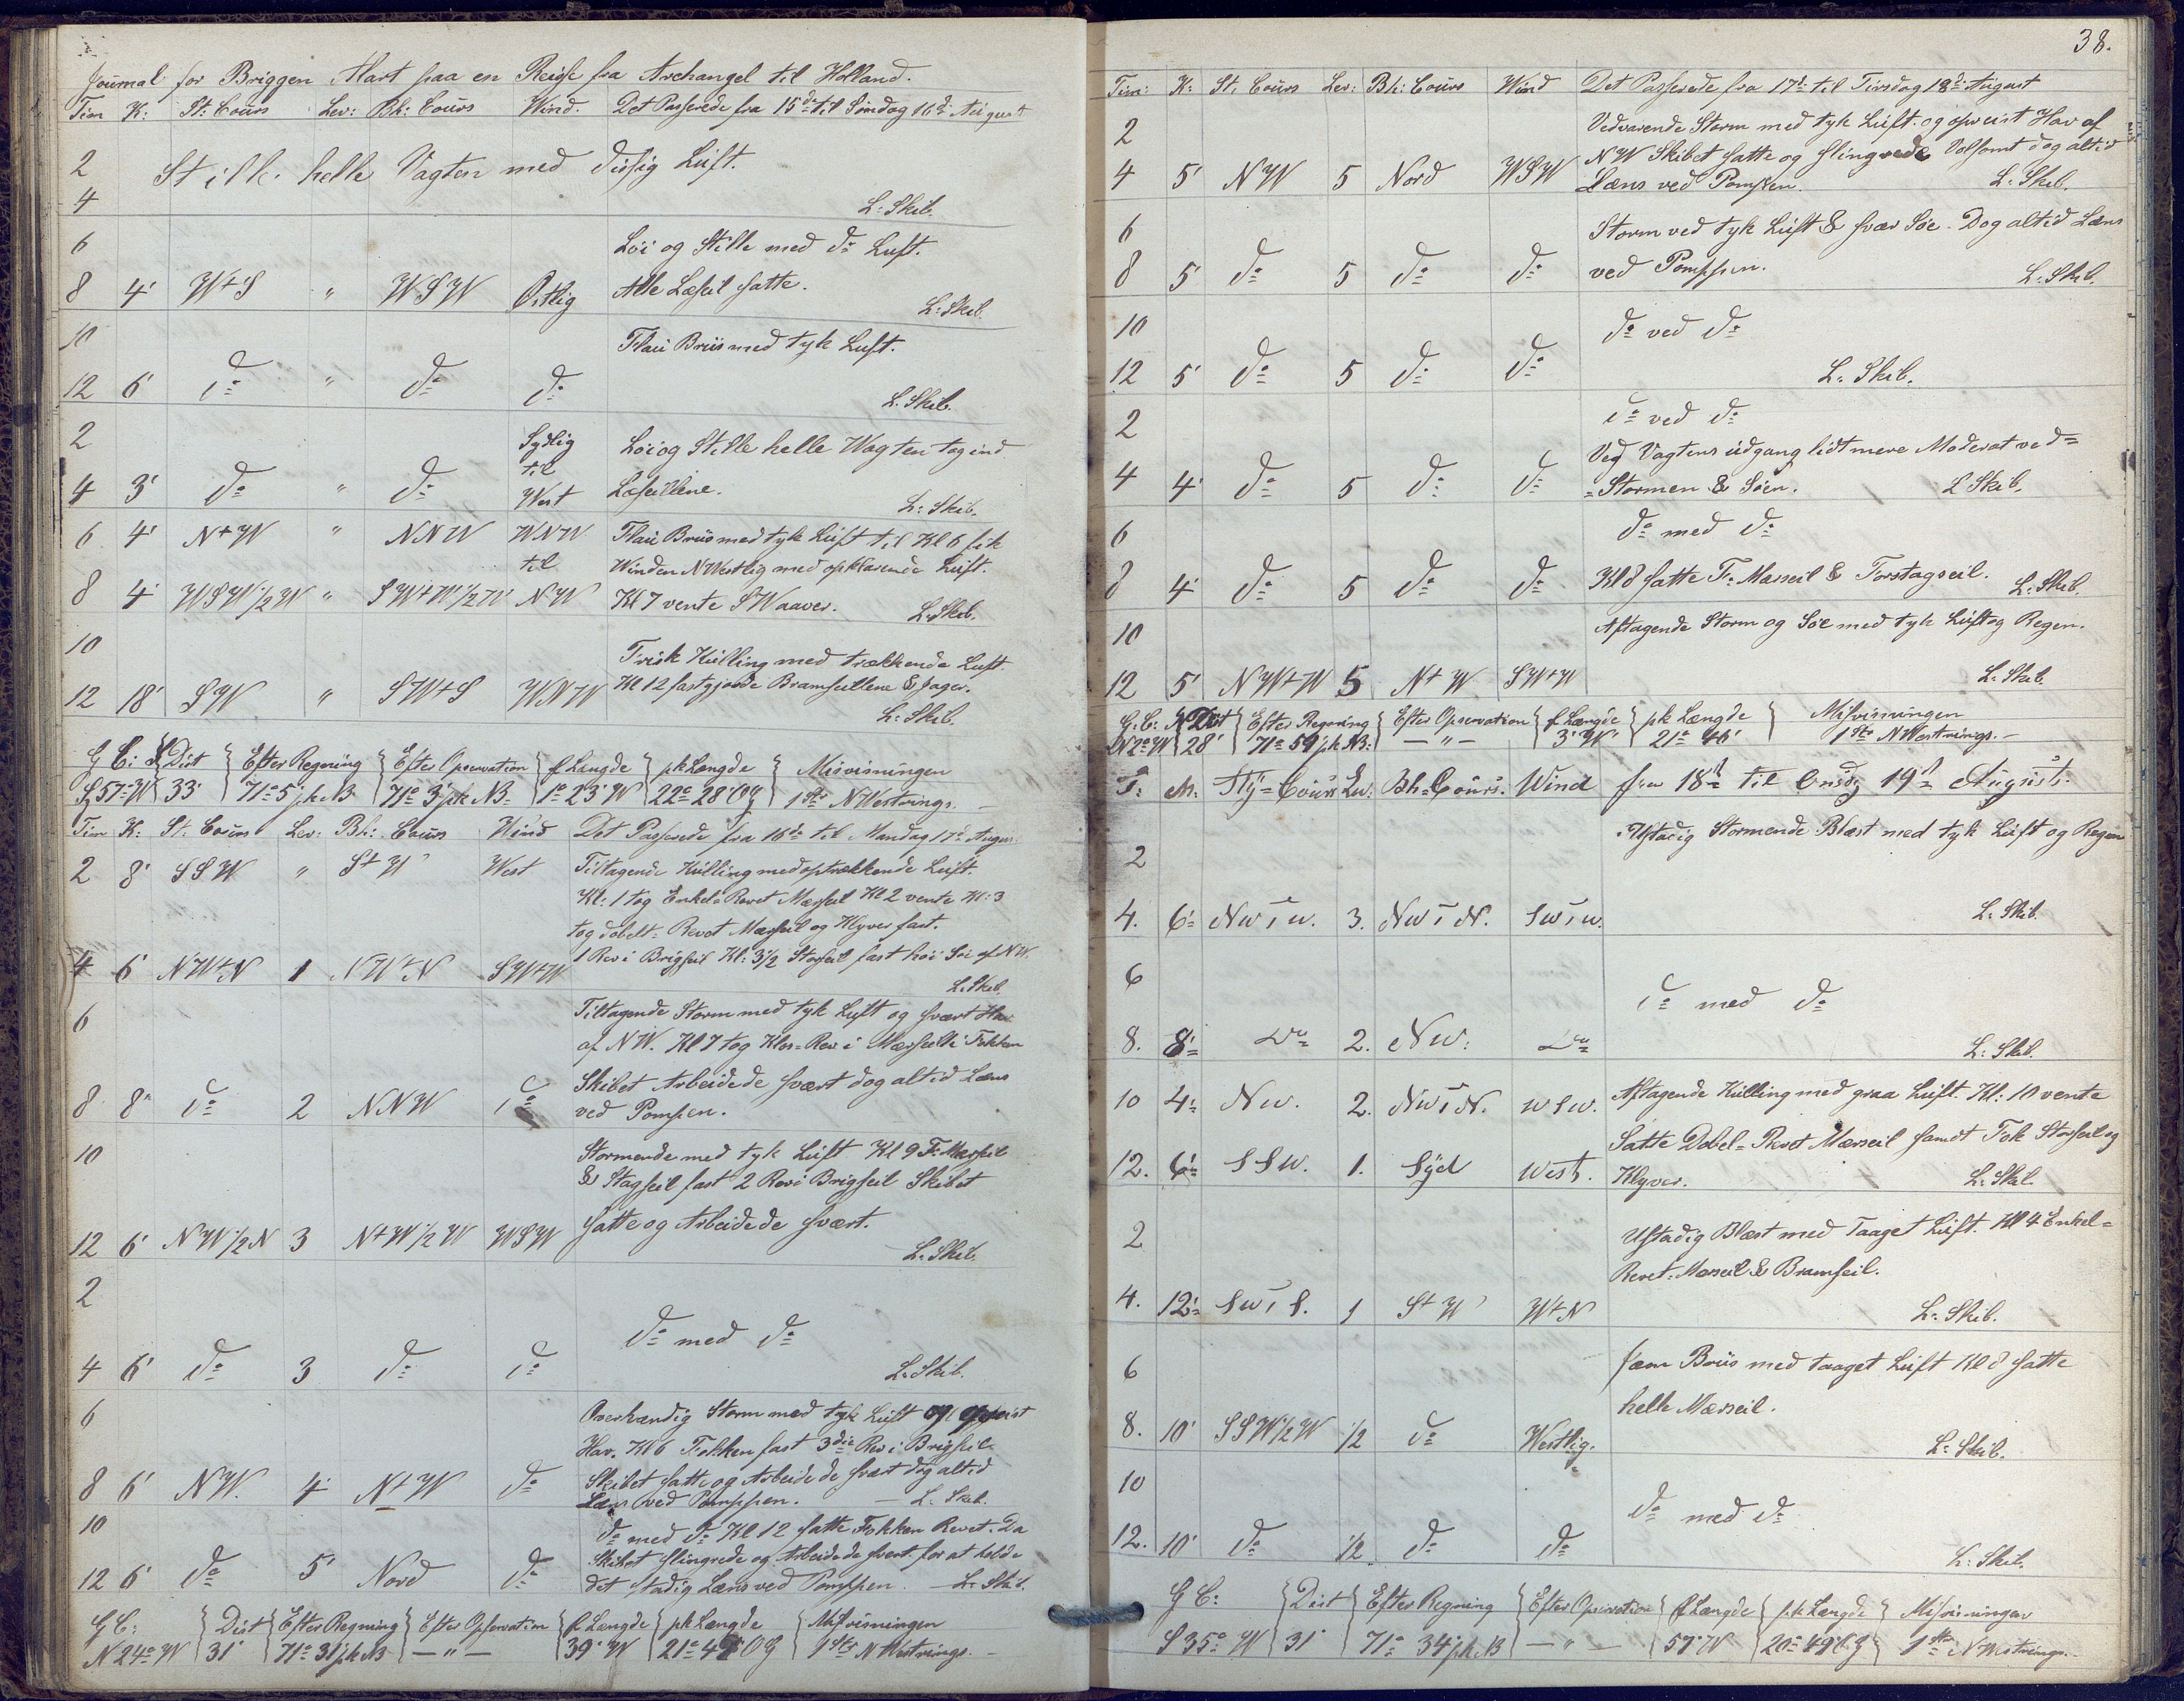 Journal for Briggen Alart paa en Reise fra Archangel til Holland.
Tim K: St: Cours Lev: Bh: Cours Wind. Det Passerede fra 15de til Søndag 16de August
2 Stille helle Vagten med disig Luft.
4 L: Skib.
6 Løi og Stille med do Luft.
8 4' W+S " WSW Østlig Alle Læseil satte.
L: Skib.
10 Flau Briis med tyk Luft.
12 6' do " do do
L. Skib.
2 Sydlig Løi og Stille helle Wagten tog ind
til
4 3' do " do West Læseillene.
L: Skib.
6 4' N+W " NNW WNW Flau Briis med tyk Luft til Kl 6 fik
til Winden NWestlig med opklarende Luft.
8 4' WSW1/2W " SW+W1/2W NW Kl 7 vente SWaaver. L: Skib.
10 Frisk Kulling med trækkende Luft.
12 18' SW " SW+S WNW Kl 12 fastgjorde Bramseillene & Jager.
L: Skib.
G C: Dist Efter Regning Efter Opservation f Længde pk Længde Misvisningen
S57°W 33' 71° 5' pk NB 71° 3' pk NB 1° 23' W 22° 28' OG 1 Str NWestrings.
Tim K: St: Cours Lev: Bh: Cours Wind Det Passerede fra 16de til Mandag 17de August
2 8' SSW " S+W West Tiltagende Kulling med optrækkende Luft.
Kl: 1 tog Enkel-Revet Mærseil Kl 2 vente Kl: 3
tog dobelt-Revet Mærseil og Klyver fast.
4 6' NW+N 1 NW+N SW+W 1 Rev i Brigseil Kl: 3 1/2 Storseil fast höi Søe af NW.
L. Skib.
6 Tiltagende Storm med tyk Luft og svært Hav
af NW. Kl 7 tog Klos-Rev i Mærseille Fokken
8 8" do 2 NNW do Skibet Arbeidede svært dog altid Læns
ved Pompen.
10 Stormende med tyk Luft Kl 9 F: Mærseil
& Stagseil fast 2 Rev i Brigseil Skibet
12 6' NW1/2N 3 N+W1/2W WSW satte og Arbeidede svært.
L. Skib.
2 do med do
4 6' do 3 do do L: Skib.
6 Overhændig Storm med tyk Luft og opreist
Hav. Kl 6 Fokken fast 3die Rev i Brigseil
8 6' NW. 4 N+W do Skibet satte og Arbeidede svært dog altid
Læns ved Pomppen. — L: Skib.
10 do med do Kl 12 satte Fokken Revet. Da
Skibet slingrede og Arbeidede svært for at holde
12 6' do 5' Nord do det stadig Læns ved Pomppen. — L: Skib.
G C: Dist Efter Regning Efter Opservation f Længde pk Længde Misvisningen
N 24° W 31' 71° 31' pk NB — " — 39' W 21° 49' OG 1 Str N Westrings. —
38.
Tim: K: St. Cours Lev: Bh: Cours Wind Det Passerede fra 17de til Tirsdag 18de August
2 Vedvarende Storm med tyk Luft og opreist Hav af
NW Skibet satte og slingrede Volsomt dog altid
4 5' NW 5 Nord WSW Læns ved Pompen. L: Skib.
6 Storm ved tyk Luft & svær Søe. Dog altid Læns
8 5' do 5 do do ved Pomppen. L: Skib.
10 do ved do
12 5' do 5 do do L. Skib.
2 do ved do
Ved Vagtens udgang lidt mere Moderat ved=
4 4' do 5 do do =Stormen & Søen. L Skib.
6 do med do
8 4' do 5 do do Kl 8 satte F: Mærseil & Forstagseil. L: Skib.
10 Aftagende Storm og Søe med tyk Luft og Regen.
12 5' NW+W 5 N+W SW+W L: Skib.
G: C: Dist Efter Regning Efter Opservation f Længde pk Længde Misvisningen
N 2° W 28' 71° 59' pk NB: — " — 3' W 21° 46' 1 Str NWestrings. —
T: M: Sty=Cours Lev: Bh=Cours. Wind fra 18de til Onsdag 19de August.
Ustadig Stormende Blæst med tyk Luft og Regen
2
4. 6' NwTw. 3. NwTN. SwTw. L: Skib.
6 do med do
8. 8' Do 2. Nw: Do L: Skib.
10 4' Nw. 2. NwTN. wsw. Aftagende Kulling med graa Luft. Kl: 10 vente
Satte Dobel-Revet Mærseil samt Fok Storseil og
12. 6' SSw. 1. Syd West. Klyver. L: Skib.
2 Ustadig Blæst med Taaget Luft. Kl 4 Enkel=
Revet-Mærseil & Bramseil.
4. 12' SwTS. 1 S+W W+N L: Skib.
6 Jæm Briis med taaget Luft Kl 8 satte
helle Mærseil.
8. 10' SSW1/2W 1/2 do Westlig. L: Skib.
10 do med do
12. 10' do 1/2 do do L: Skib.
G C: Dist Efter Regning Efter Opservation f Længde pk Længde Misvisningen
S 35° W 31' 71° 34' pk NB — " — 57' W 20° 49' OG 1 Str N Westrings. —